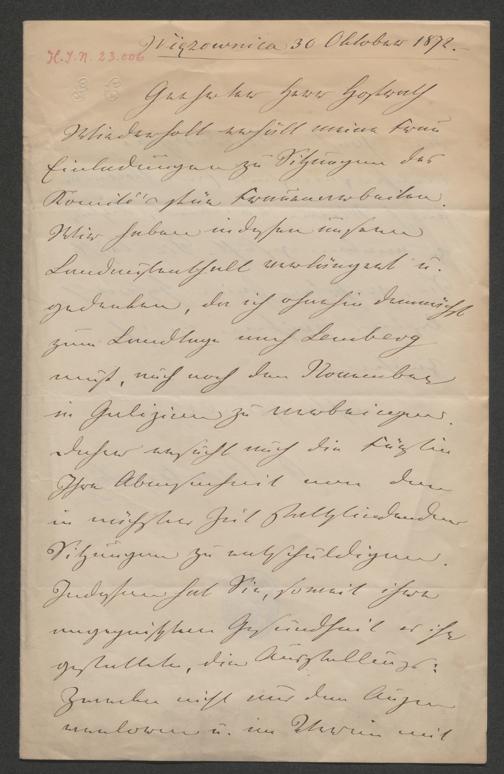 H.I.N. 23.006
Wiązownica 30 Oktober 1872.
Geehrter Herr Hofrath
Wiederholt erhält meine Frau
Einladungen zu Sitzungen des
Komité's für Frauenarbeiten.
Wir haben indessen unseren
Landaufenthalt verlängert u.
gedenken, da ich ohnehin demnächst
zum Landtage nach Lemberg
muß, auch noch den November
in Galizien zu verbringen.
Daher ersucht mich die Fürstin
Ihre Abwesenheit von den
in nächster Zeit stattfindenden
Sitzungen zu entschuldigen.
Indessen hat Sie, soweit ihre
angegriffene Gesundheit es ihr
gestattete, die Ausstellungs-
Zwecke nicht aus den Augen
verloren u. im Verein mit